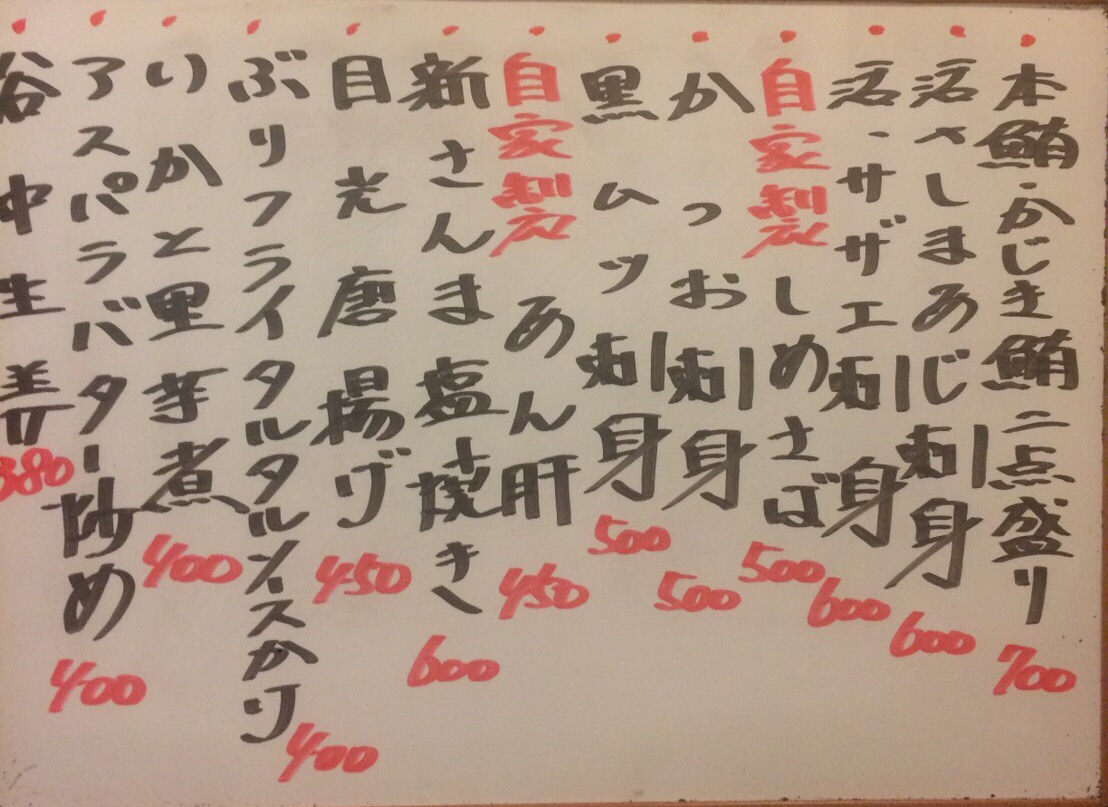 本鮪・かじき鮪二点盛り 700
活・しまあじ刺身 600
活・サザエ刺身 600
自家製しめさば 500
かつお刺身 500
黒ムツ刺身 500
自家製あん肝 450
新さんま塩焼き 600
目光唐揚げ 450
ぶりフライタルタルソースかけ 400
いかと里芋煮 400
アスパラバター炒め 400
谷中生姜 380